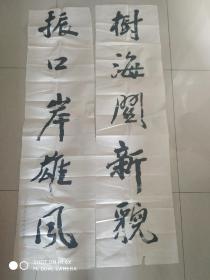 樹海開新貌
振口岸雄風